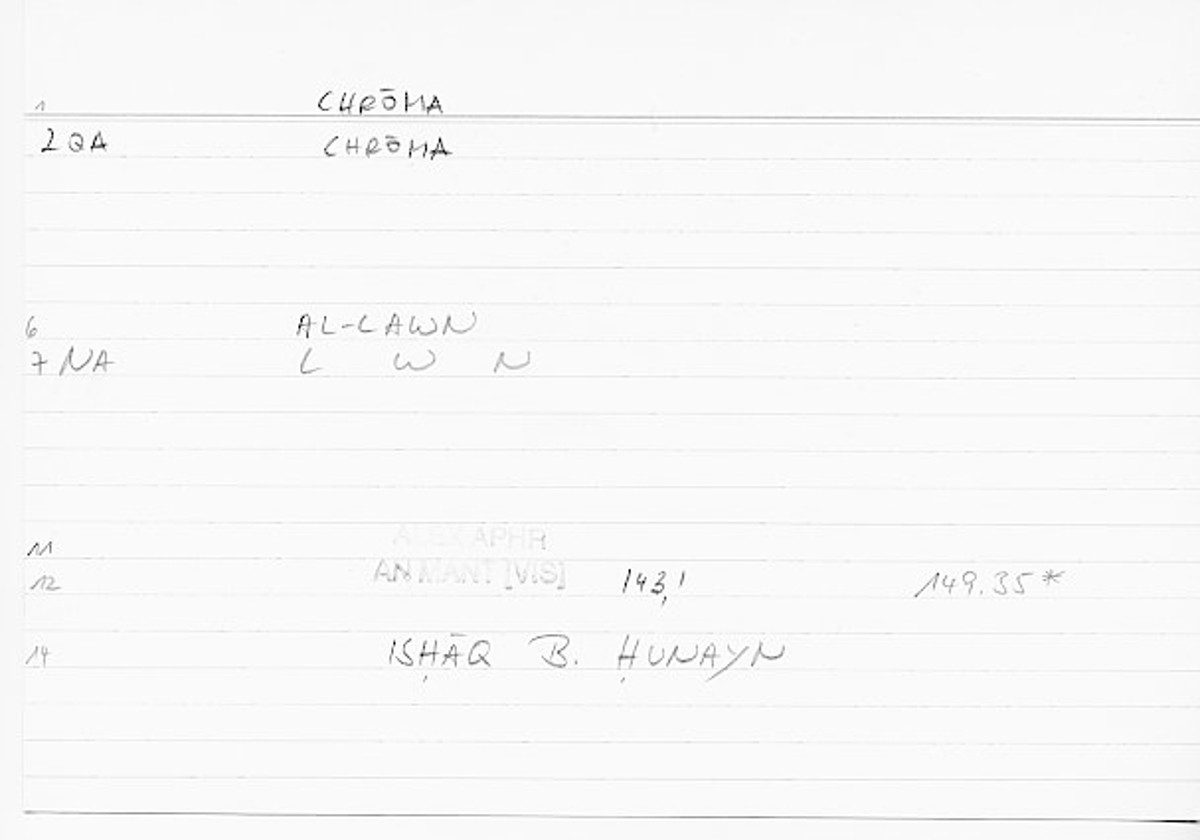 1 CHRŌMA
2 QA CHRŌMA
6 AL-LAWN
7 NA L W N
11 ALEX APHR
12 AN MANT [VIS] 143,1 149.35*
14 ISḤĀQ B. ḤUNAYN